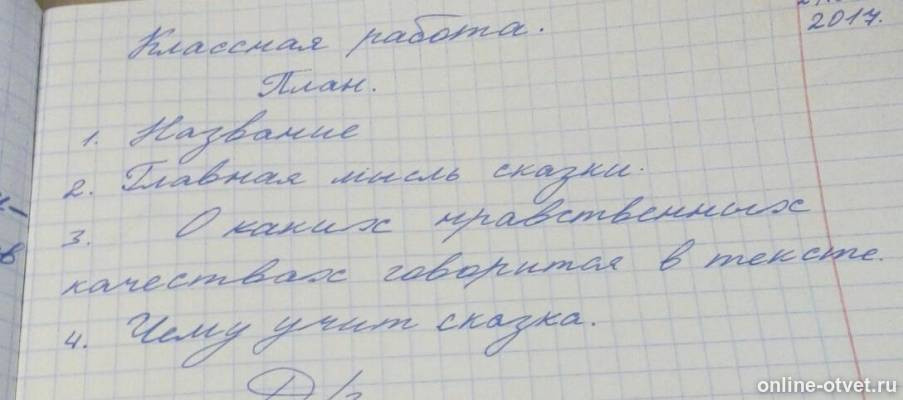 2017.
Классная работа.
План.
1. Название
2. Главная мысль сказки.
3. О каких нравственных
качествах говорится в тексте.
4. Чему учит сказка.
online-otvet.ru